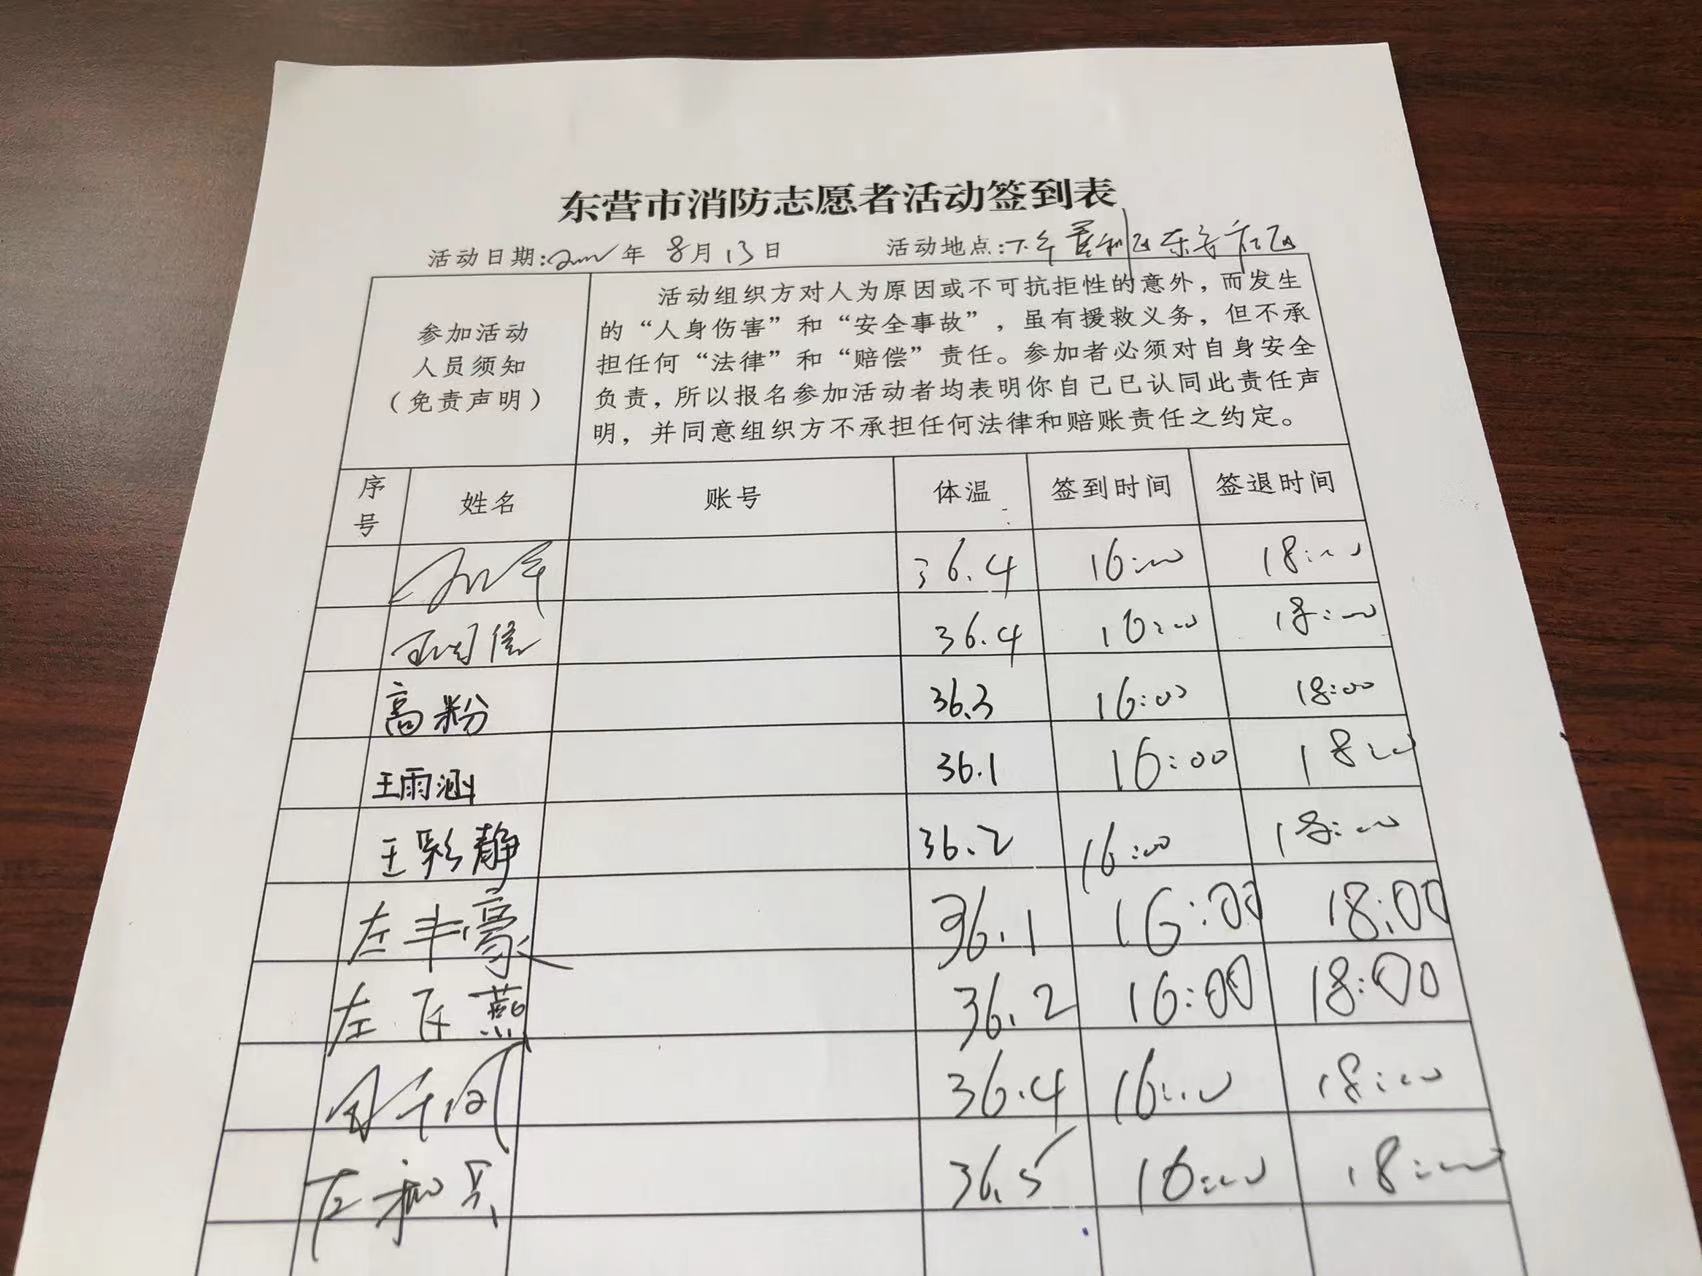 东营市消防志愿者活动签到表
活动日期: 年 8月13日 活动地点:
参加活动
人员须知
（免责声明）
活动组织方对人为原因或不可抗拒性的意外，而发生
的“人身伤害”和“安全事故”，虽有援救义务，但不承
担任何“法律”和“赔偿”责任。参加者必须对自身安全
负责，所以报名参加活动者均表明你自己已认同此责任声
明，并同意组织方不承担任何法律和赔账责任之约定。
序号 姓名 账号 体温 签到时间 签退时间
36.4 16:00 18:00
36.4 16:00 18:00
高粉 36.3 16:00 18:00
王雨涵 36.1 16:00 18:00
王彩静 36.2 16:00 18:00
左丰豪 36.1 16:00 18:00
左飞燕 36.2 16:00 18:00
36.4 16:00 18:00
36.5 16:00 18:00